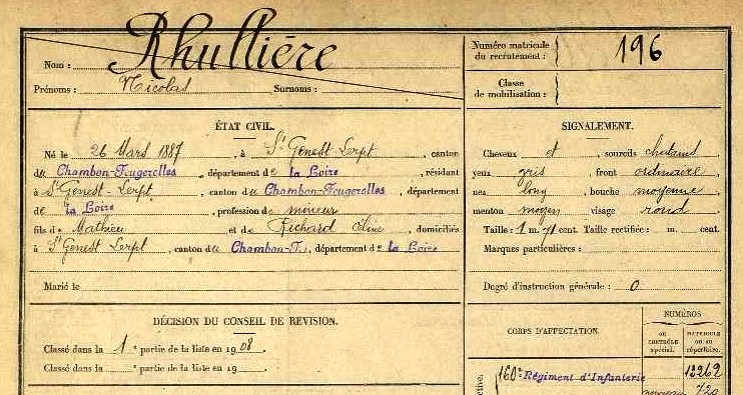 Rhullière
Nom :
Prénoms : Nicolas Surnoms :
Numéro matricule
du recrutement : 196
Classe
de mobilisation :
ÉTAT CIVIL.
Né le 26 Mars 1887, à St Genest-Lerpt, canton
du Chambon-Feugerolles, département de la Loire, résidant
à St Genest-Lerpt, canton du Chambon-Feugerolles, département
de la Loire, profession de mineur
fils de Mathieu et de Richard Céline, domiciliés
à St Genest Lerpt, canton du Chambon-F., département de la Loire
Marié le
SIGNALEMENT.
Cheveux et, sourcils chataud
yeux gris, front ordinaire
nez long, bouche moyenne
menton moyen visage rond
Taille : 1 m. 71 cent. Taille rectifiée : m. cent.
Marques particulières :
Degré d'instruction générale : 0
DÉCISION DU CONSEIL DE REVISION.
Classé dans la 1e partie de la liste en 1908.
Classé dans la e partie de la liste en 19
CORPS D'AFFECTATION.
NUMÉROS
AU CONTRÔLE spécial.
MATRICULE OU AU répertoire.
160e Régiment d'Infanterie 12262
nouveau 720